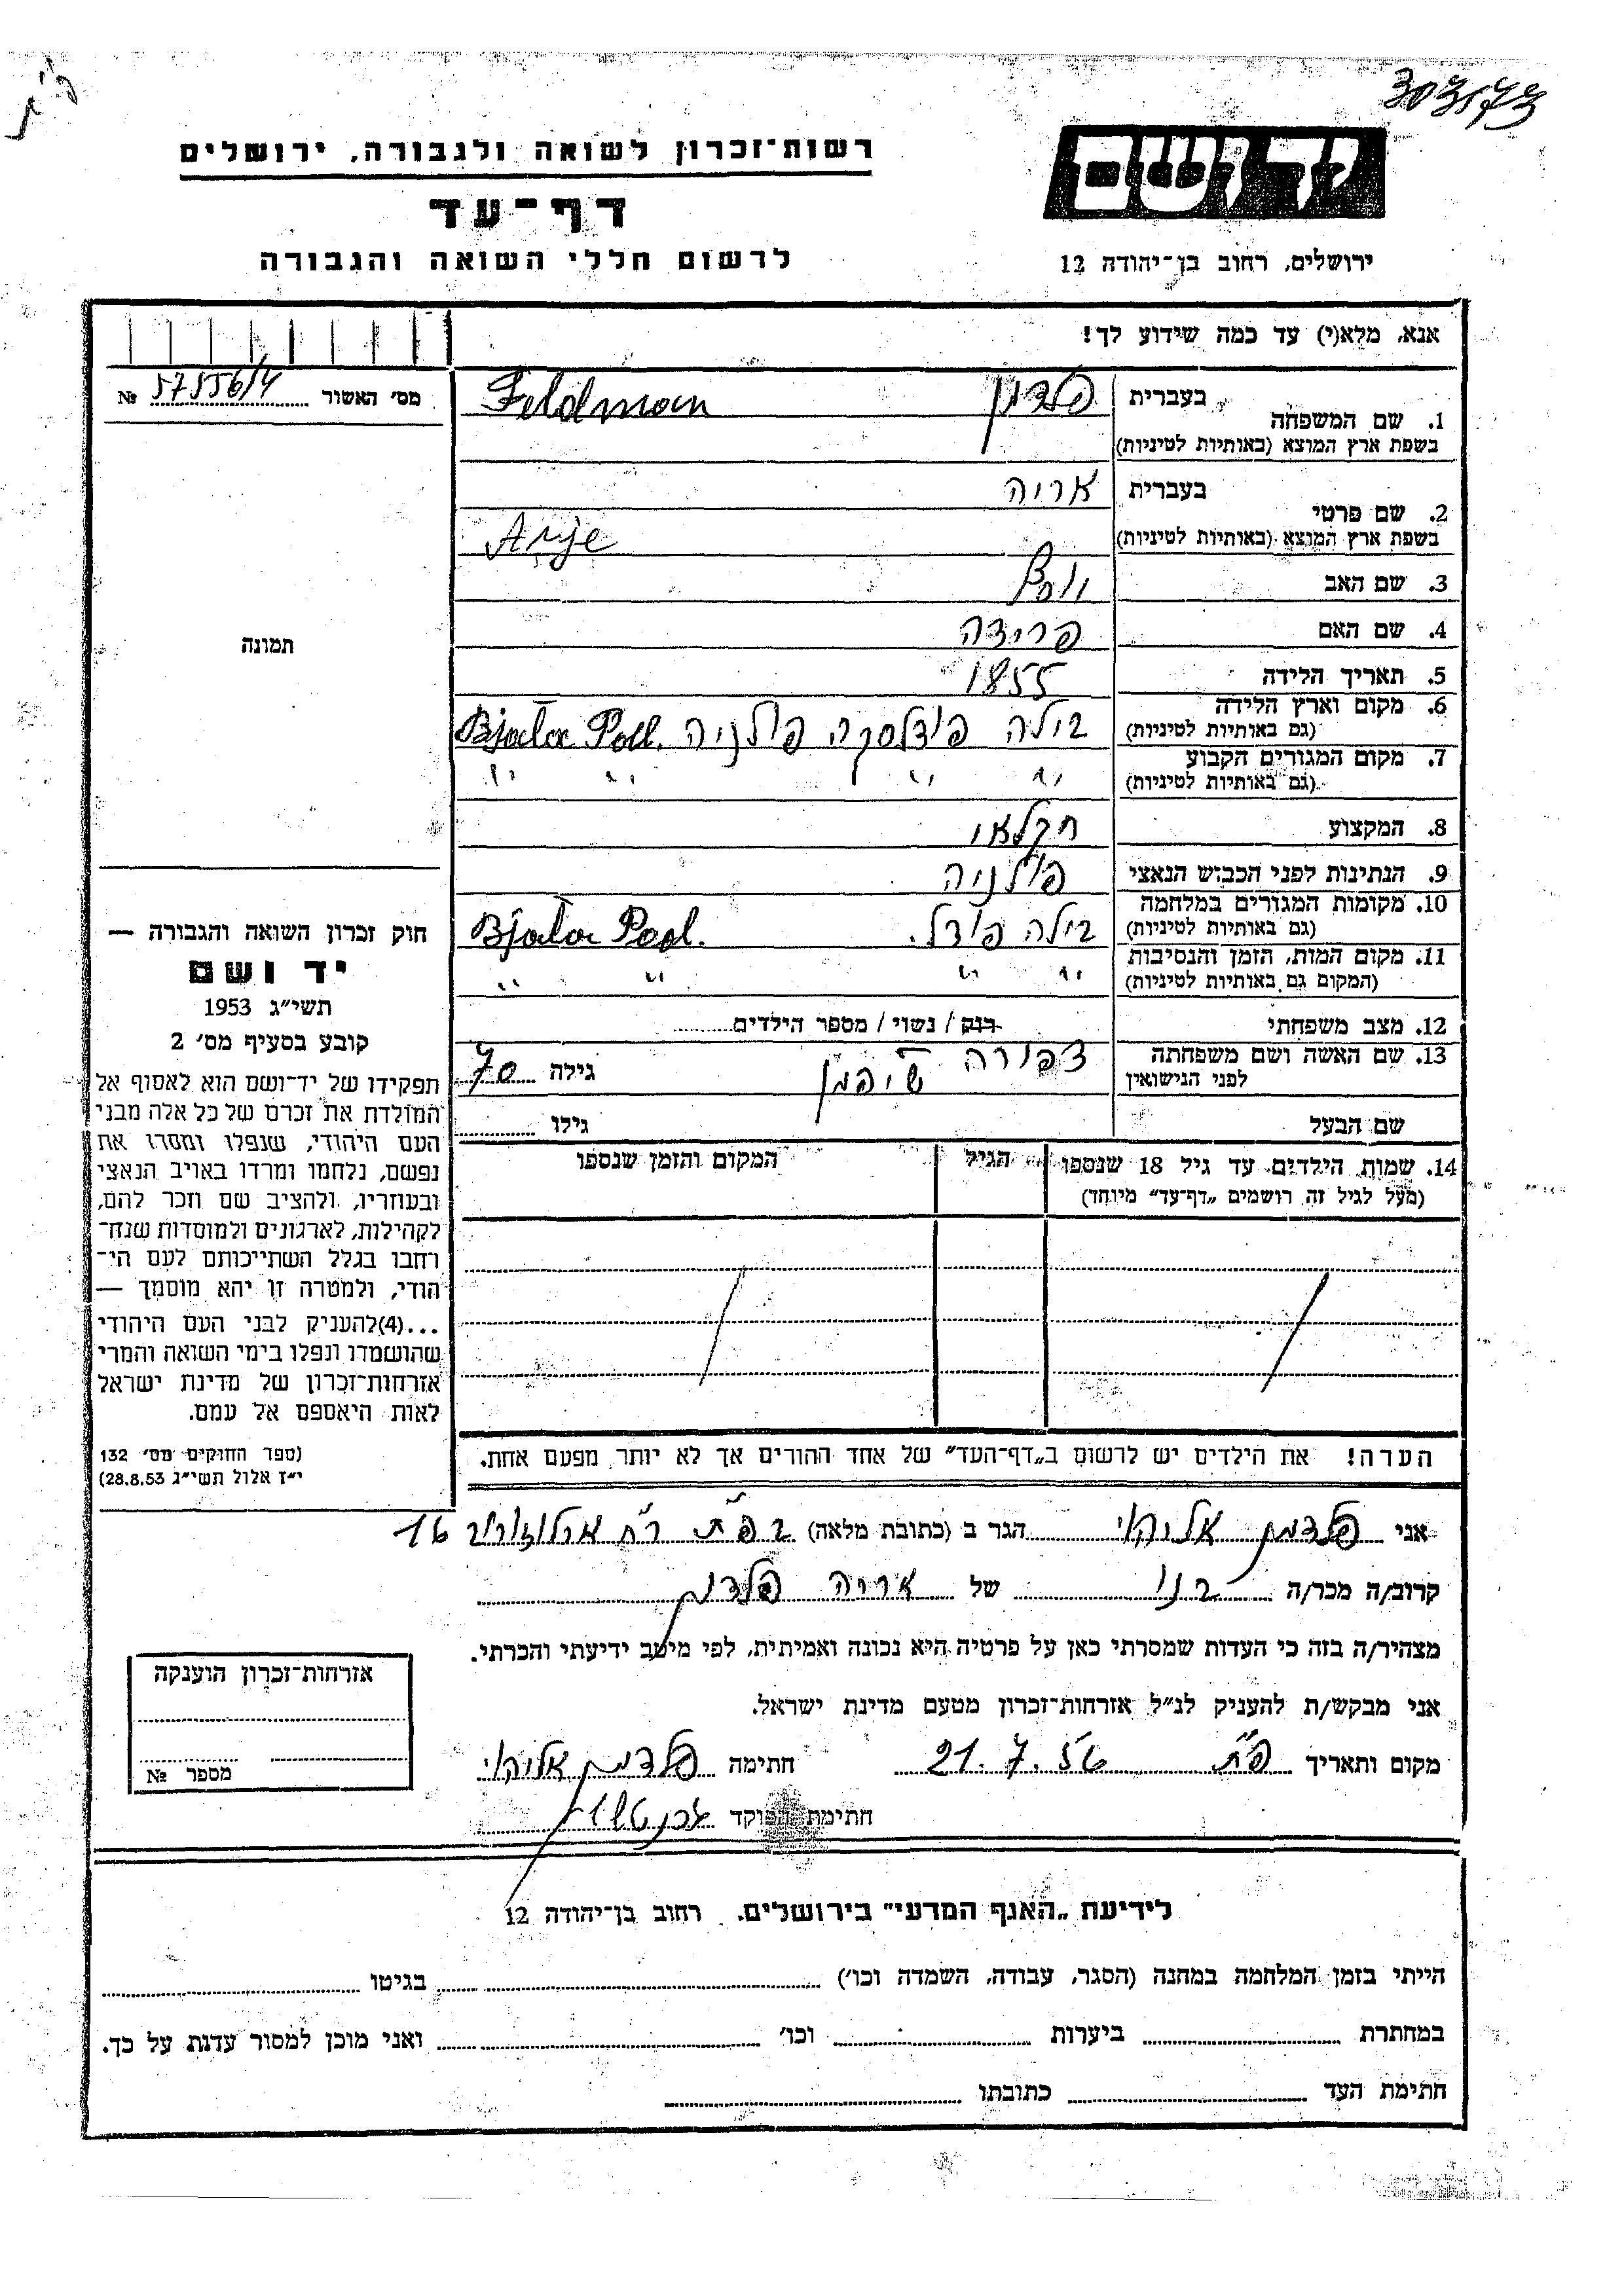 303173
פ"ת
רשות־זכרון לשואה ולגבורה, ירושלים
דף־עד
לרשום חללי השואה והגבורה
יד ושם
ירושלים, רחוב בן־יהודה 12
אנא, מלא(י) עד כמה שידוע לך!
מס׳ האשור 57556/4 №
1. שם המשפחה בעברית פלדמן Feldman
בשפת ארץ המוצא (באותיות לטיניות)
2. שם פרטי בעברית אריה
בשפת ארץ המוצא (באותיות לטיניות) Arje
3. שם האב
4. שם האם פרידה
5. תאריך הלידה 1855
6. מקום וארץ הלידה (גם באותיות לטיניות) בילה פודלסקה פולניה Bjala Podl.
7. מקום המגורים הקבוע (גם באותיות לטיניות) " " " "
8. המקצוע חקלאי
9. הנתינות לפני הכבוש הנאצי פולניה
10. מקומות המגורים במלחמה (גם באותיות לטיניות) בילה פודל. Bjala Podl.
11. מקום המות, הזמן והנסיבות (המקום גם באותיות לטיניות) " " " "
12. מצב משפחתי רוק / נשוי / מספר הילדים
13. שם האשה ושם משפחתה לפני הנישואין צפורה שיפמן גילה 70
שם הבעל גילו
14. שמות הילדים עד גיל 18 שנספו הגיל המקום והזמן שנספו
(מעל לגיל זה רושמים „דף־עד״ מיוחד)
הערה! את הילדים יש לרשום ב„דף־העד״ של אחד ההורים אך לא יותר מפעם אחת.
תמונה
חוק זכרון השואה והגבורה —
יד ושם
תשי״ג 1953
קובע בסעיף מס׳ 2
תפקידו של יד־ושם הוא לאסוף אל
המולדת את זכרם של כל אלה מבני
העם היהודי, שנפלו ומסרו את
נפשם, נלחמו ומרדו באויב הנאצי
ובעוזריו, ולהציב שם וזכר להם,
לקהילות, לארגונים ולמוסדות שנח־
רחבו בגלל השתייכותם לעם הי־
הודי, ולמטרה זו יהא מוסמך —
...(4)להעניק לבני העם היהודי
שהושמדו ונפלו בימי השואה והמרי
אזרחות־זכרון של מדינת ישראל
לאות היאספם אל עמם.
(ספר החוקים מס׳ 132
י״ז אלול תשי״ג 28.8.53)
אני פלדמן אליקים הגר ב (כתובת מלאה) בפ"ת רח ארלוזורוב 16
קרוב/ה מכר/ה בנו של אריה פלדמן
מצהיר/ה בזה כי העדות שמסרתי כאן על פרטיה היא נכונה ואמיתית, לפי מיטב ידיעתי והכרתי.
אני מבקש/ת להעניק לנ״ל אזרחות־זכרון מטעם מדינת ישראל.
מקום ותאריך פ"ת 21.7.56 חתימה פלדמן אליקים
חתימת הפוקד
אזרחות־זכרון הוענקה
מספר №
לידיעת „האגף המדעי״ בירושלים. רחוב בן־יהודה 12
הייתי בזמן המלחמה במחנה (הסגר, עבודה, השמדה וכו׳) בגיטו
במחתרת ביערות וכו׳ ואני מוכן למסור עדות על כך.
חתימת העד כתובתו